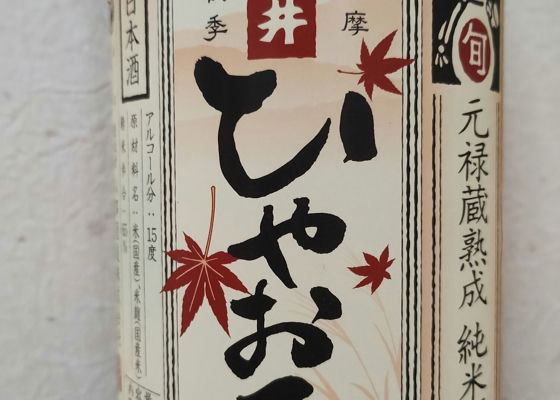 旬
元禄蔵熟成 純米
摩
井
季
ひやお
日本酒
アルコール分：15度
原材料名：米(国産)、米麹(国産米)
精米歩合